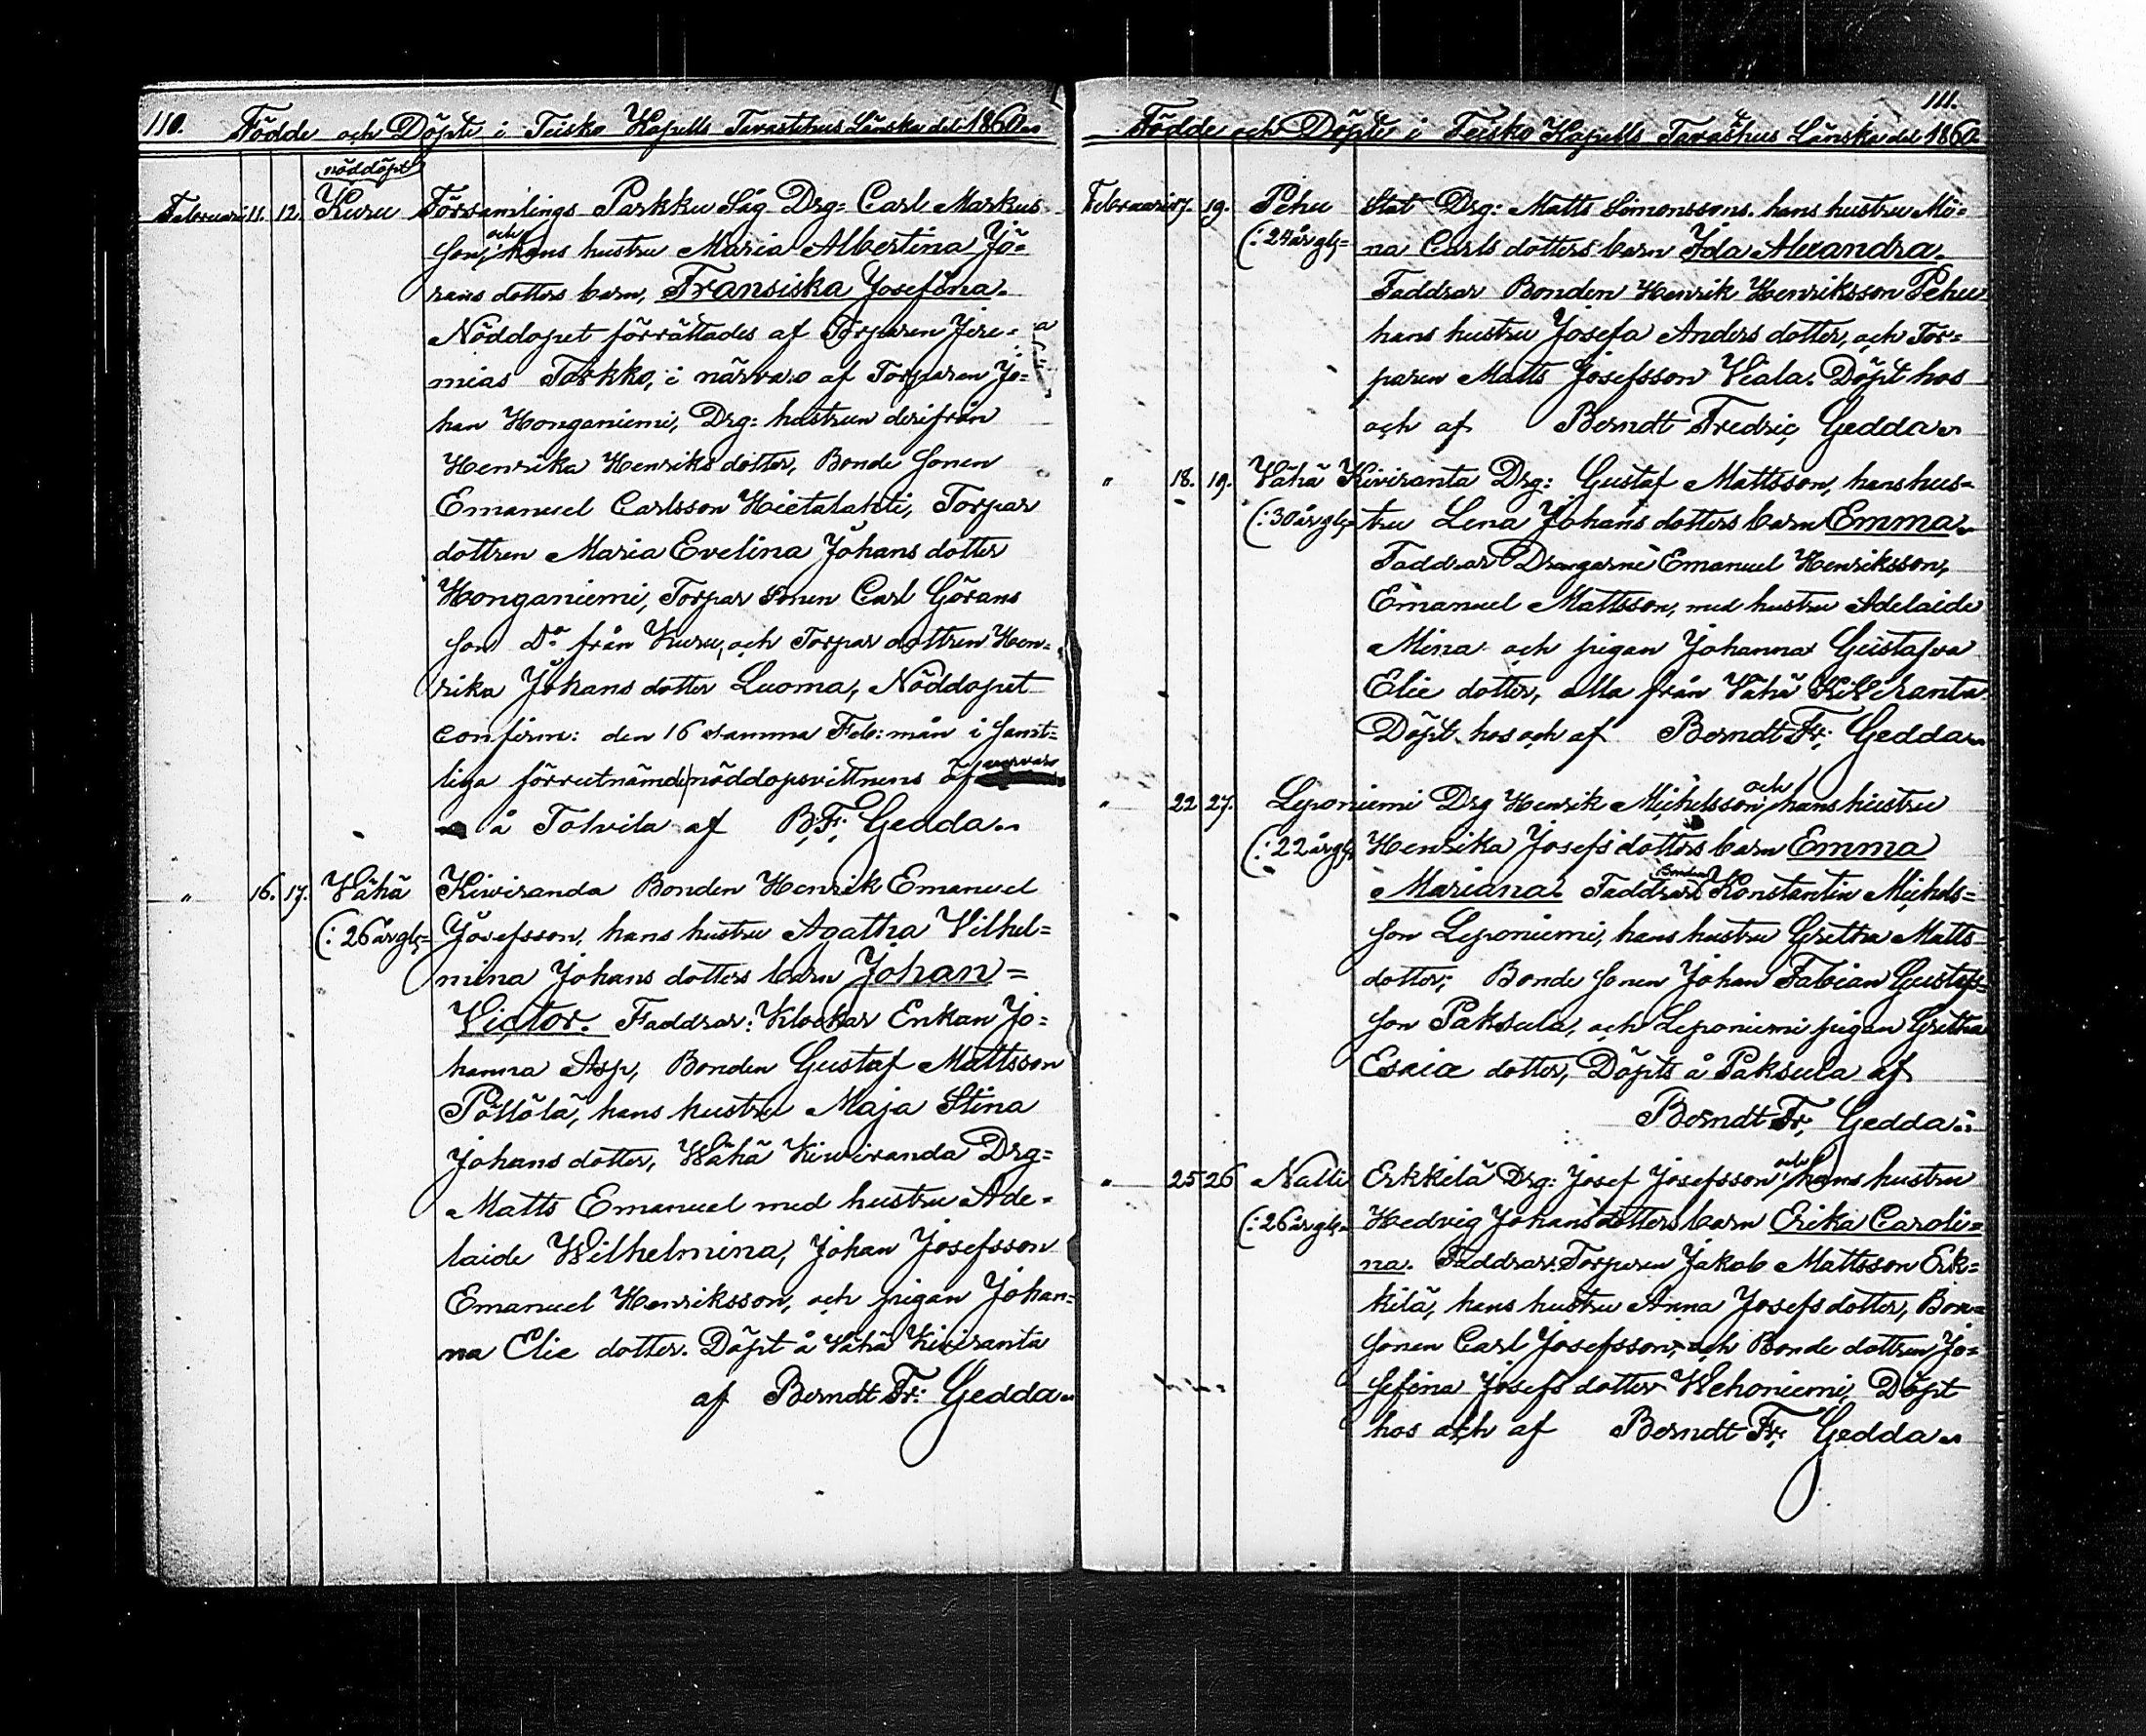 110. Födde och Döpte i Teisko Kapells Tavastehus Länska del 1860.
nöddöpt
Februari 11. 12. Kuru Församlings Parkku Såg Drg: Carl Markus
och
son, hans hustru Maria Albertina Jö=
rans dotters barn, Fransiska Josefina.
Nöddopet förrättades af Torparen Jere=
mias Torkko, i närvaro af Torparen Jo=
han Honganiemi, Drg: hustrun derifrån
Henrika Henriks dotter, Bonde sonen
Emanuel Carlsson Hietalahti, Torpar
dottren Maria Evelina Johans dotter
Honganiemi, Torpar sonen Carl Görans
son Do från Kuru, och Torpar dottren Hen=
rika Johans dotter Luoma, Nöddopet
confirm: den 16 samma Feb: mån i samt=
liga förrutnämde nöddopsvittnens
närvaro
å Tolvila af B. F: Gedda.
" 16. 17. Vähä Kiwiranda Bonden Henrik Emanuel
(: 26 år gl:= Josefsson, hans hustru Agatha Vilhel=
mina Johans dotters barn Johan=
Victor. Faddrar: Klockar Enkan Jo=
hanna Asp, Bonden Gustaf Mattsson
Pöllölä, hans hustru Maja Stina
Johans dotter, Wähä Kiwiranda Drg=
Matts Emanuel med hustru Ade=
laide Wilhelmina, Johan Josefsson
Emanuel Henriksson, och pigan Johan=
na Elie dotter. Döpt å Vähä Kiviranta
af Berndt Fr: Gedda.
111.
Födde och Döpte i Teisko Kapells Tavasthus Länska del 1860.
Februari 17. 19. Pehu Stat Drg: Matts Simonssons. hans hustru Mi=
(: 24 år gl:= na Carls dotters barn Ida Alexandra.
Faddrar Bonden Henrik Henriksson Pehu
hans hustru Josefa Anders dotter, och Tor=
paren Matts Josefsson Viala. Döpt hos
och af Berndt Fredric Gedda.
" 18. 19. Vähä Kiviranta Drg: Gustaf Mattsson, hans hus=
(: 30 år gl:= tru Lena Johans dotters barn Emma.
Faddrar Drängarne Emanuel Henriksson,
Emanuel Mattsson, med hustru Adelaide
Mina och pigan Johanna Gustafva
Elie dotter, alla från Vähä Kiviranta
Döpt hos och af Berndt Fr: Gedda.
och
" 22 27. Leponiemi Drg Henrik Michelsson, hans hustru
(: 22 år gl: Henrika Josefs dotters barn Emma
Bonden
Mariana. Faddrar Konstantin Michels=
son Leponiemi, hans hustru Gretha Matts
dotter; Bonde sonen Johan Fabian Gustafs=
son Paksula, och Leponiemi pigan Gretha
Esaiæ dotter, Döpts å Paksula af
Berndt Fr. Gedda.
och
" 25 26 Nalli Erkkilä Drg: Josef Josefsson, hans hustru
(: 26 år gl:= Hedvig Johans dotters barn Erika Caroli=
na. Faddrar. Torparen Jakob Mattsson Erk=
kilä, hans hustru Anna Josefs dotter, Bon=
sonen Carl Josefsson, och Bonde dottren Jo=
sefina Josefs dotter Wehoniemi, Döpt
hos och af Berndt Fr: Gedda.